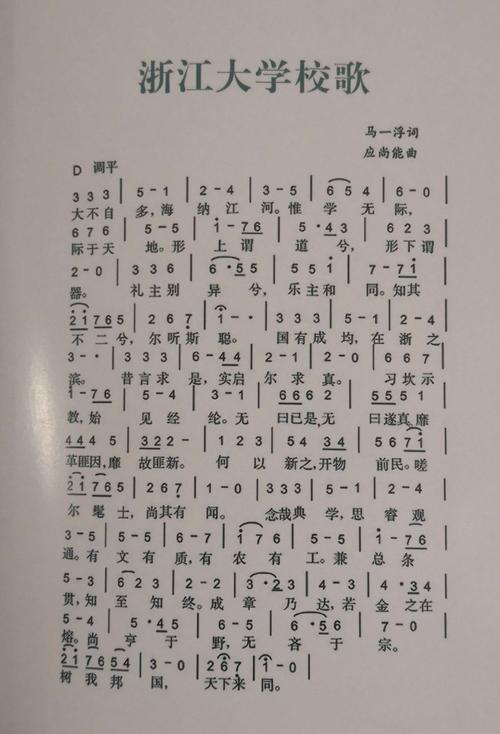 浙江大学校歌
马一浮词
应尚能曲
D 调平
3 3 3 | 5 - 1 | 2 - 4 | 3 - 5 | 6 5 4 | 6 - 0 |
大不自 多,海 纳江 河。惟 学 无 际,
6 7 6 | 5 - 5 | 1 - 7 6 | 5 · 4 3 | 6 2 3 |
际于天 地。形 上 谓 道 兮, 形下谓
2 - 0 | 3 3 6 | 6 · 5 5 | 5 5 1 | 7 - 7 1 |
器。 礼主别 异 兮, 乐主和 同。知其
2 1 7 6 5 | 2 6 7 | 1 - 0 | 3 3 3 | 5 - 1 | 2 - 4 |
不 二 兮, 尔听斯 聪。 国有成 均,在 浙之
3 - · | 3 3 3 | 6 - 4 4 | 2 - 1 | 2 - 0 | 6 6 7 |
滨。 昔言求 是,实启 尔 求 真。 习坎示
1 - 7 6 | 5 - 4 | 3 - 1 | 6 6 6 2 | 5 5 5 1 |
教,始 见 经 纶。无 曰已是,无 曰遂真,靡
4 4 4 5 | 3 2 2 - | 1 2 3 | 5 4 3 4 | 5 6 7 1 |
革匪因,靡 故匪新。 何 以 新之,开物 前民。嗟
2 1 7 6 5 | 2 6 7 | 1 - 0 | 3 3 3 | 5 - 1 | 2 - 4 |
尔 髦 士, 尚其有 闻。 念哉典 学,思 睿 观
3 - 5 | 5 - 5 | 6 - 7 | 1 7 6 | 5 - 5 | 7 - 6 |
通。有 文 有 质,有 农 有 工。兼 总 条
5 - 3 | 6 2 3 | 2 - 2 | 3 · 2 3 | 4 - 3 | 4 · 3 4 |
贯,知 至 知 终。成 章 乃 达,若 金 之在
5 - 4 | 5 · 4 5 | 6 - 5 | 6 · 5 6 | 7 - 0 |
熔。尚 亨 于 野,无 吝 于 宗。
2 1 7 6 5 4 | 3 - 0 | 2 6 7 | 1 - 0 |
树 我 邦 国, 天下来 同。